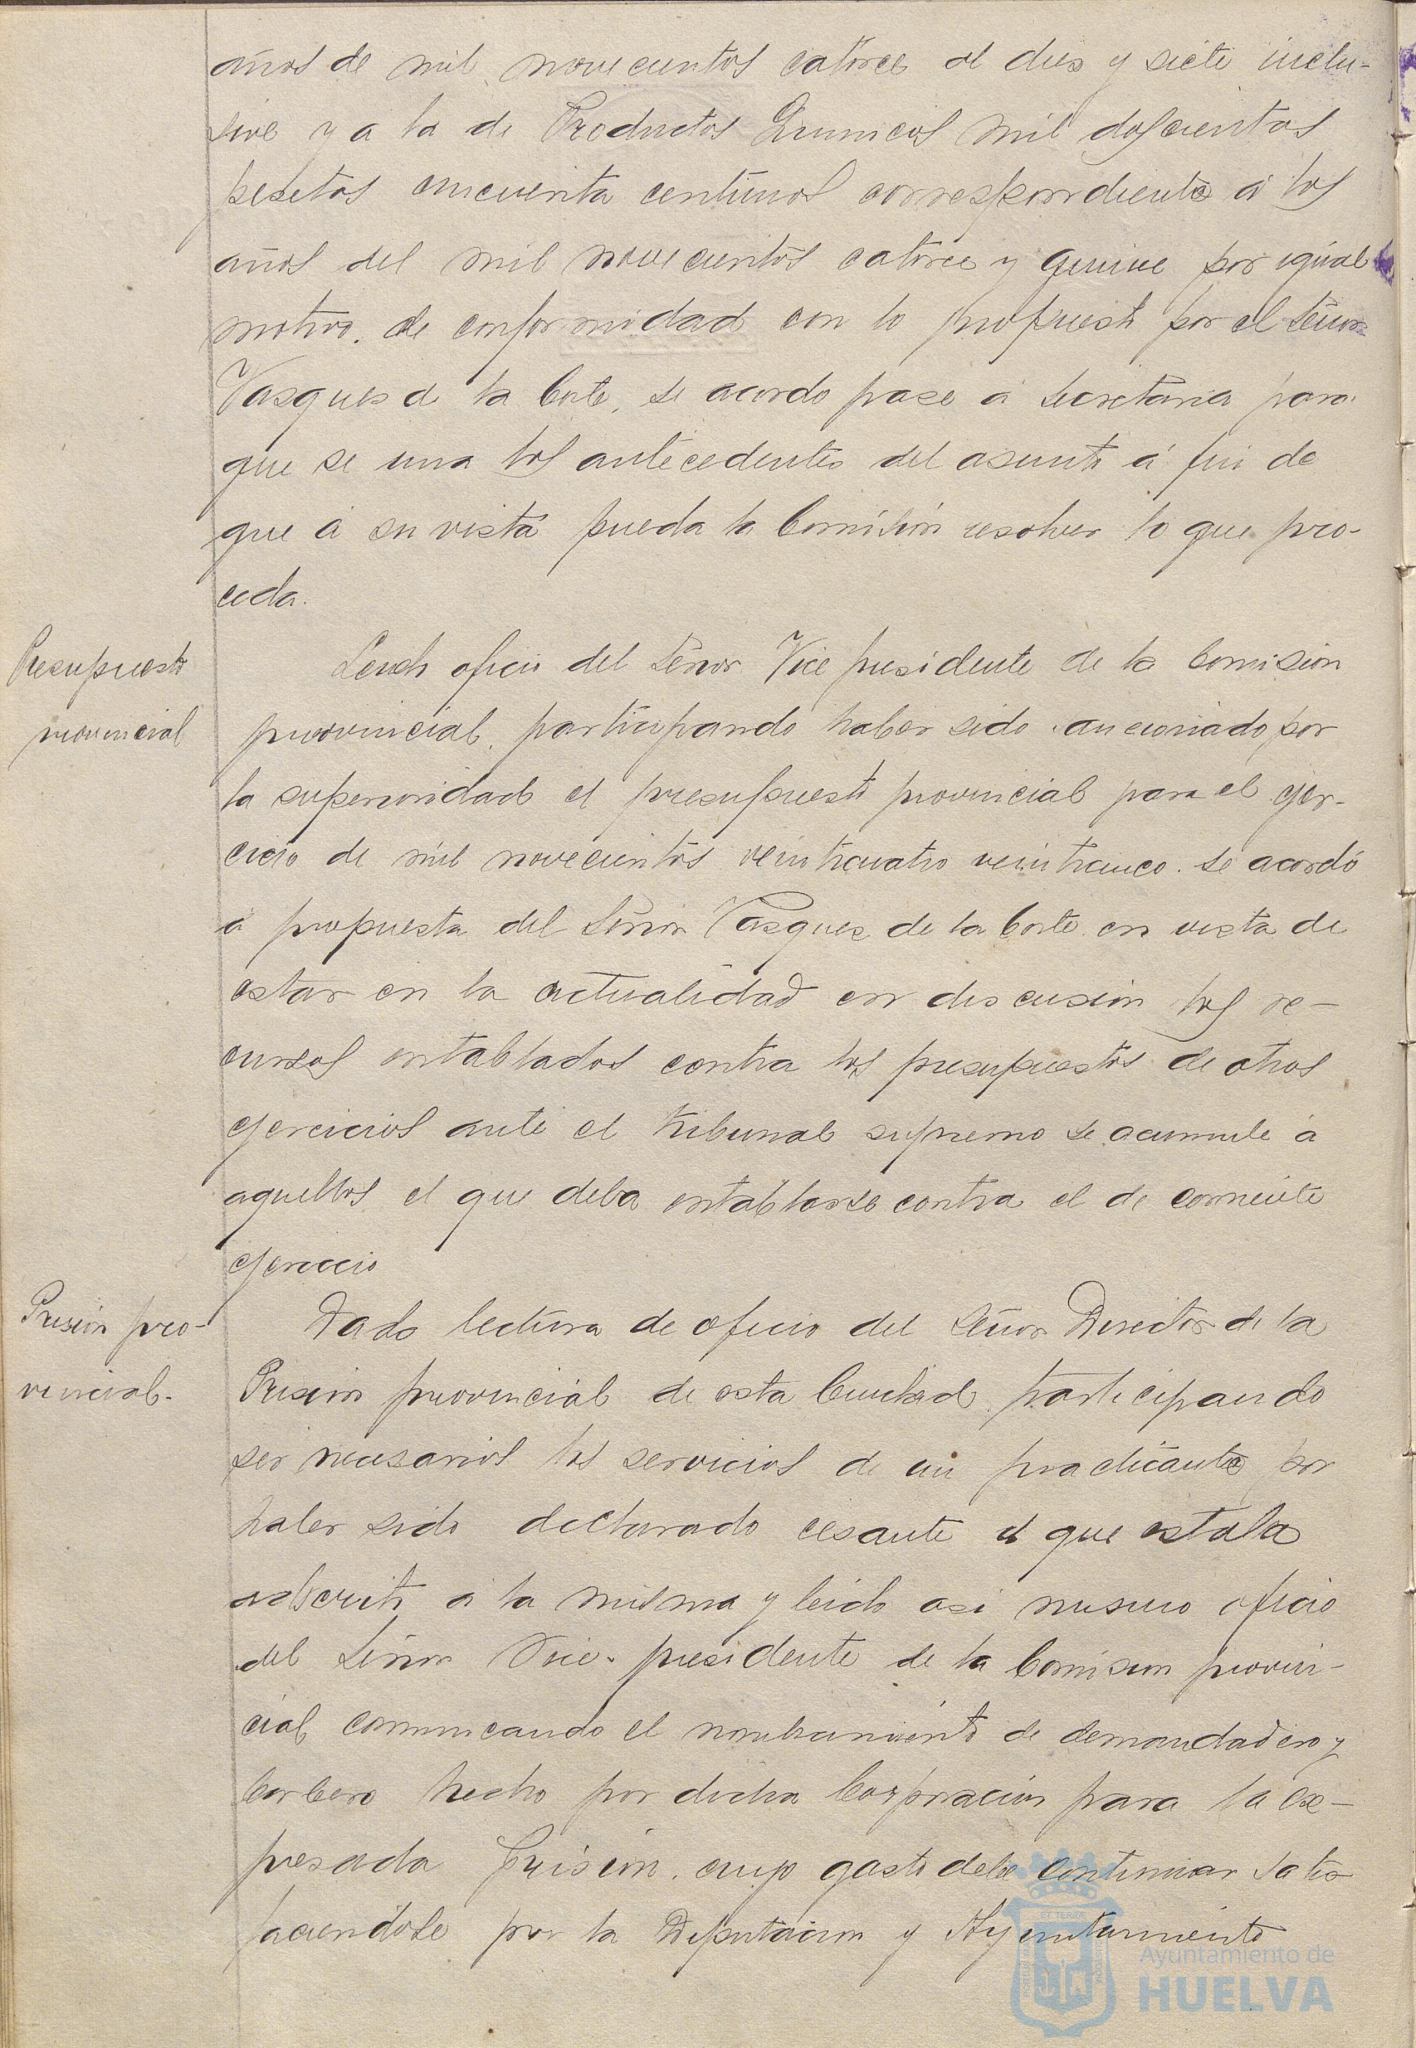 años de mil novecientos catorce al dies y siete inclu-
sive y a la de Productos Quimicos mil doscientas
pesetas cincuenta centimos correspondiente á los
años del mil novecientos catorce y quince por igual
motivo. de conformidad con lo propuesto por el Señor
Vasques de la Corte, se acordo pase á Secretaria para
que se una los antecedentes del asunto á fin de
que á su vista pueda la Comisión resolver lo que pro-
ceda.
Presupuesto
provincial
Leido oficio del Señor Vice presidente de la Comision
provincial, participando haber sido sancionado por
la superioridad el presupuesto provincial para el ejer-
cicio de mil novecientos veinticuatro veinticinco. se acordó
á propuesta del Señor Vasques de la Corte en vista de
estar en la actualidad en discusión los re-
cursos entablados contra los presupuestos de otros
ejercicios ante el tribunal supremo se acumule á
aquellos el que deba entablarse contra el de corriente
ejercicio
Prisión pro-
vincial.
Dado lectura de oficio del Señor Director de la
Prision provincial de esta Ciudad, participando
ser necesarios los servicios de un practicante por
haber sido declarado cesante el que estaba
adscrito á la misma y leido asi mismo oficio
del Señor Vice-presidente de la Comision provin-
cial comunicando el nombramiento de demandadero y
barbero hecho por dicha Corporación para la ex-
presada Prisión, cuyo gasto debe continuar satis
faciendose por la Diputacion y Ayuntamiento
Ayuntamiento de
HUELVA